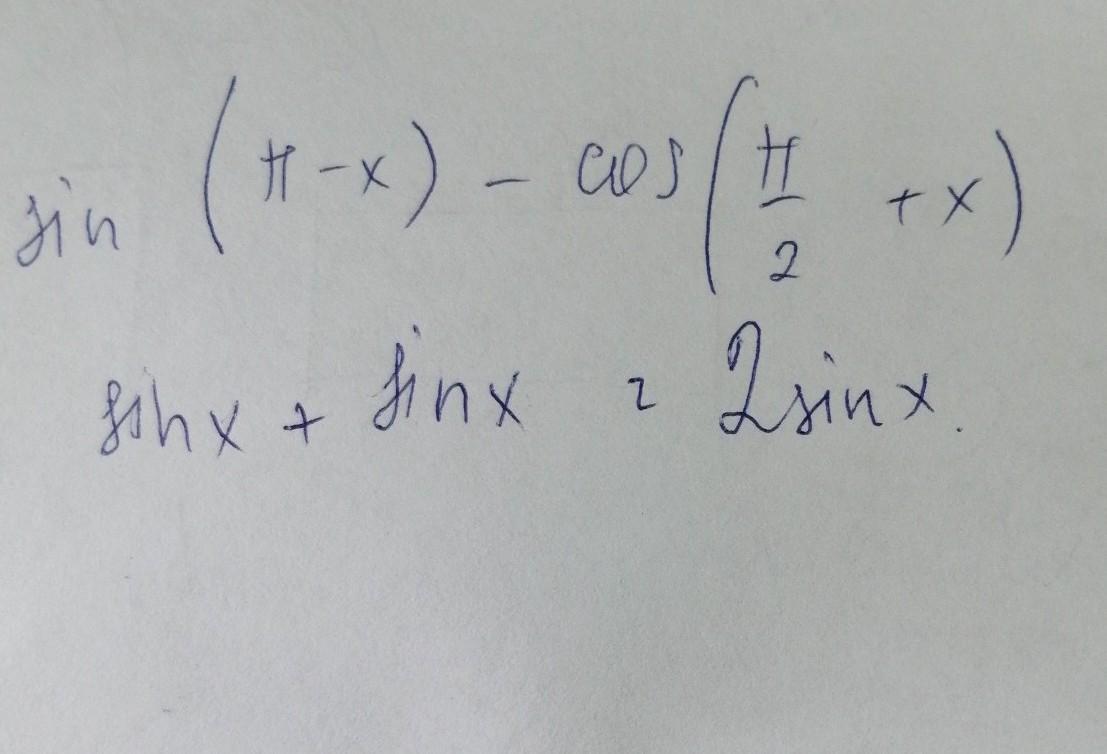 sin (π - x) - cos (π/2 + x)
sin x + sin x = 2 sin x.